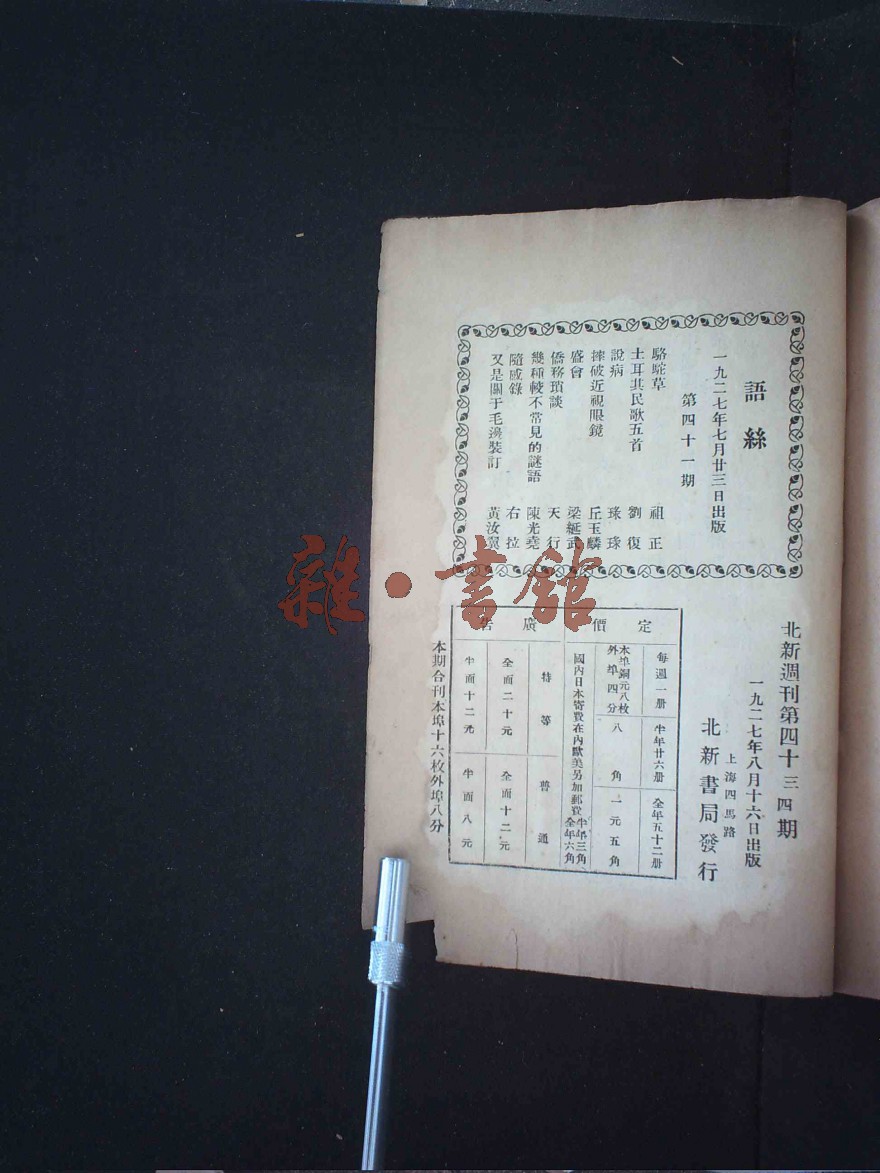 語絲
一九二七年七月廿三日出版
第四十一期
駱駝草 祖正
土耳其民歌五首 劉復
說病 琭琭
摔破近視眼鏡 丘玉麟
盛會 梁綎武
僑務瑣談 天行
幾種較不常見的謎語 陳光堯
隨感錄 右拉
又是關于毛邊裝訂 黃汝翼
北新週刊第四十三四期
一九二七年八月十六日出版
上海四馬路
北新書局發行
定價
每週一册 半年廿六册 全年五十二册
本埠銅元八枚 外埠四分 八角 一元五角
國內日本寄費在內歐美另加郵費半年三角全年六角
廣告
特等 普通
全面二十元 全面十二元
半面十二元 半面八元
本期合刊本埠十六枚外埠八分
雜·書館